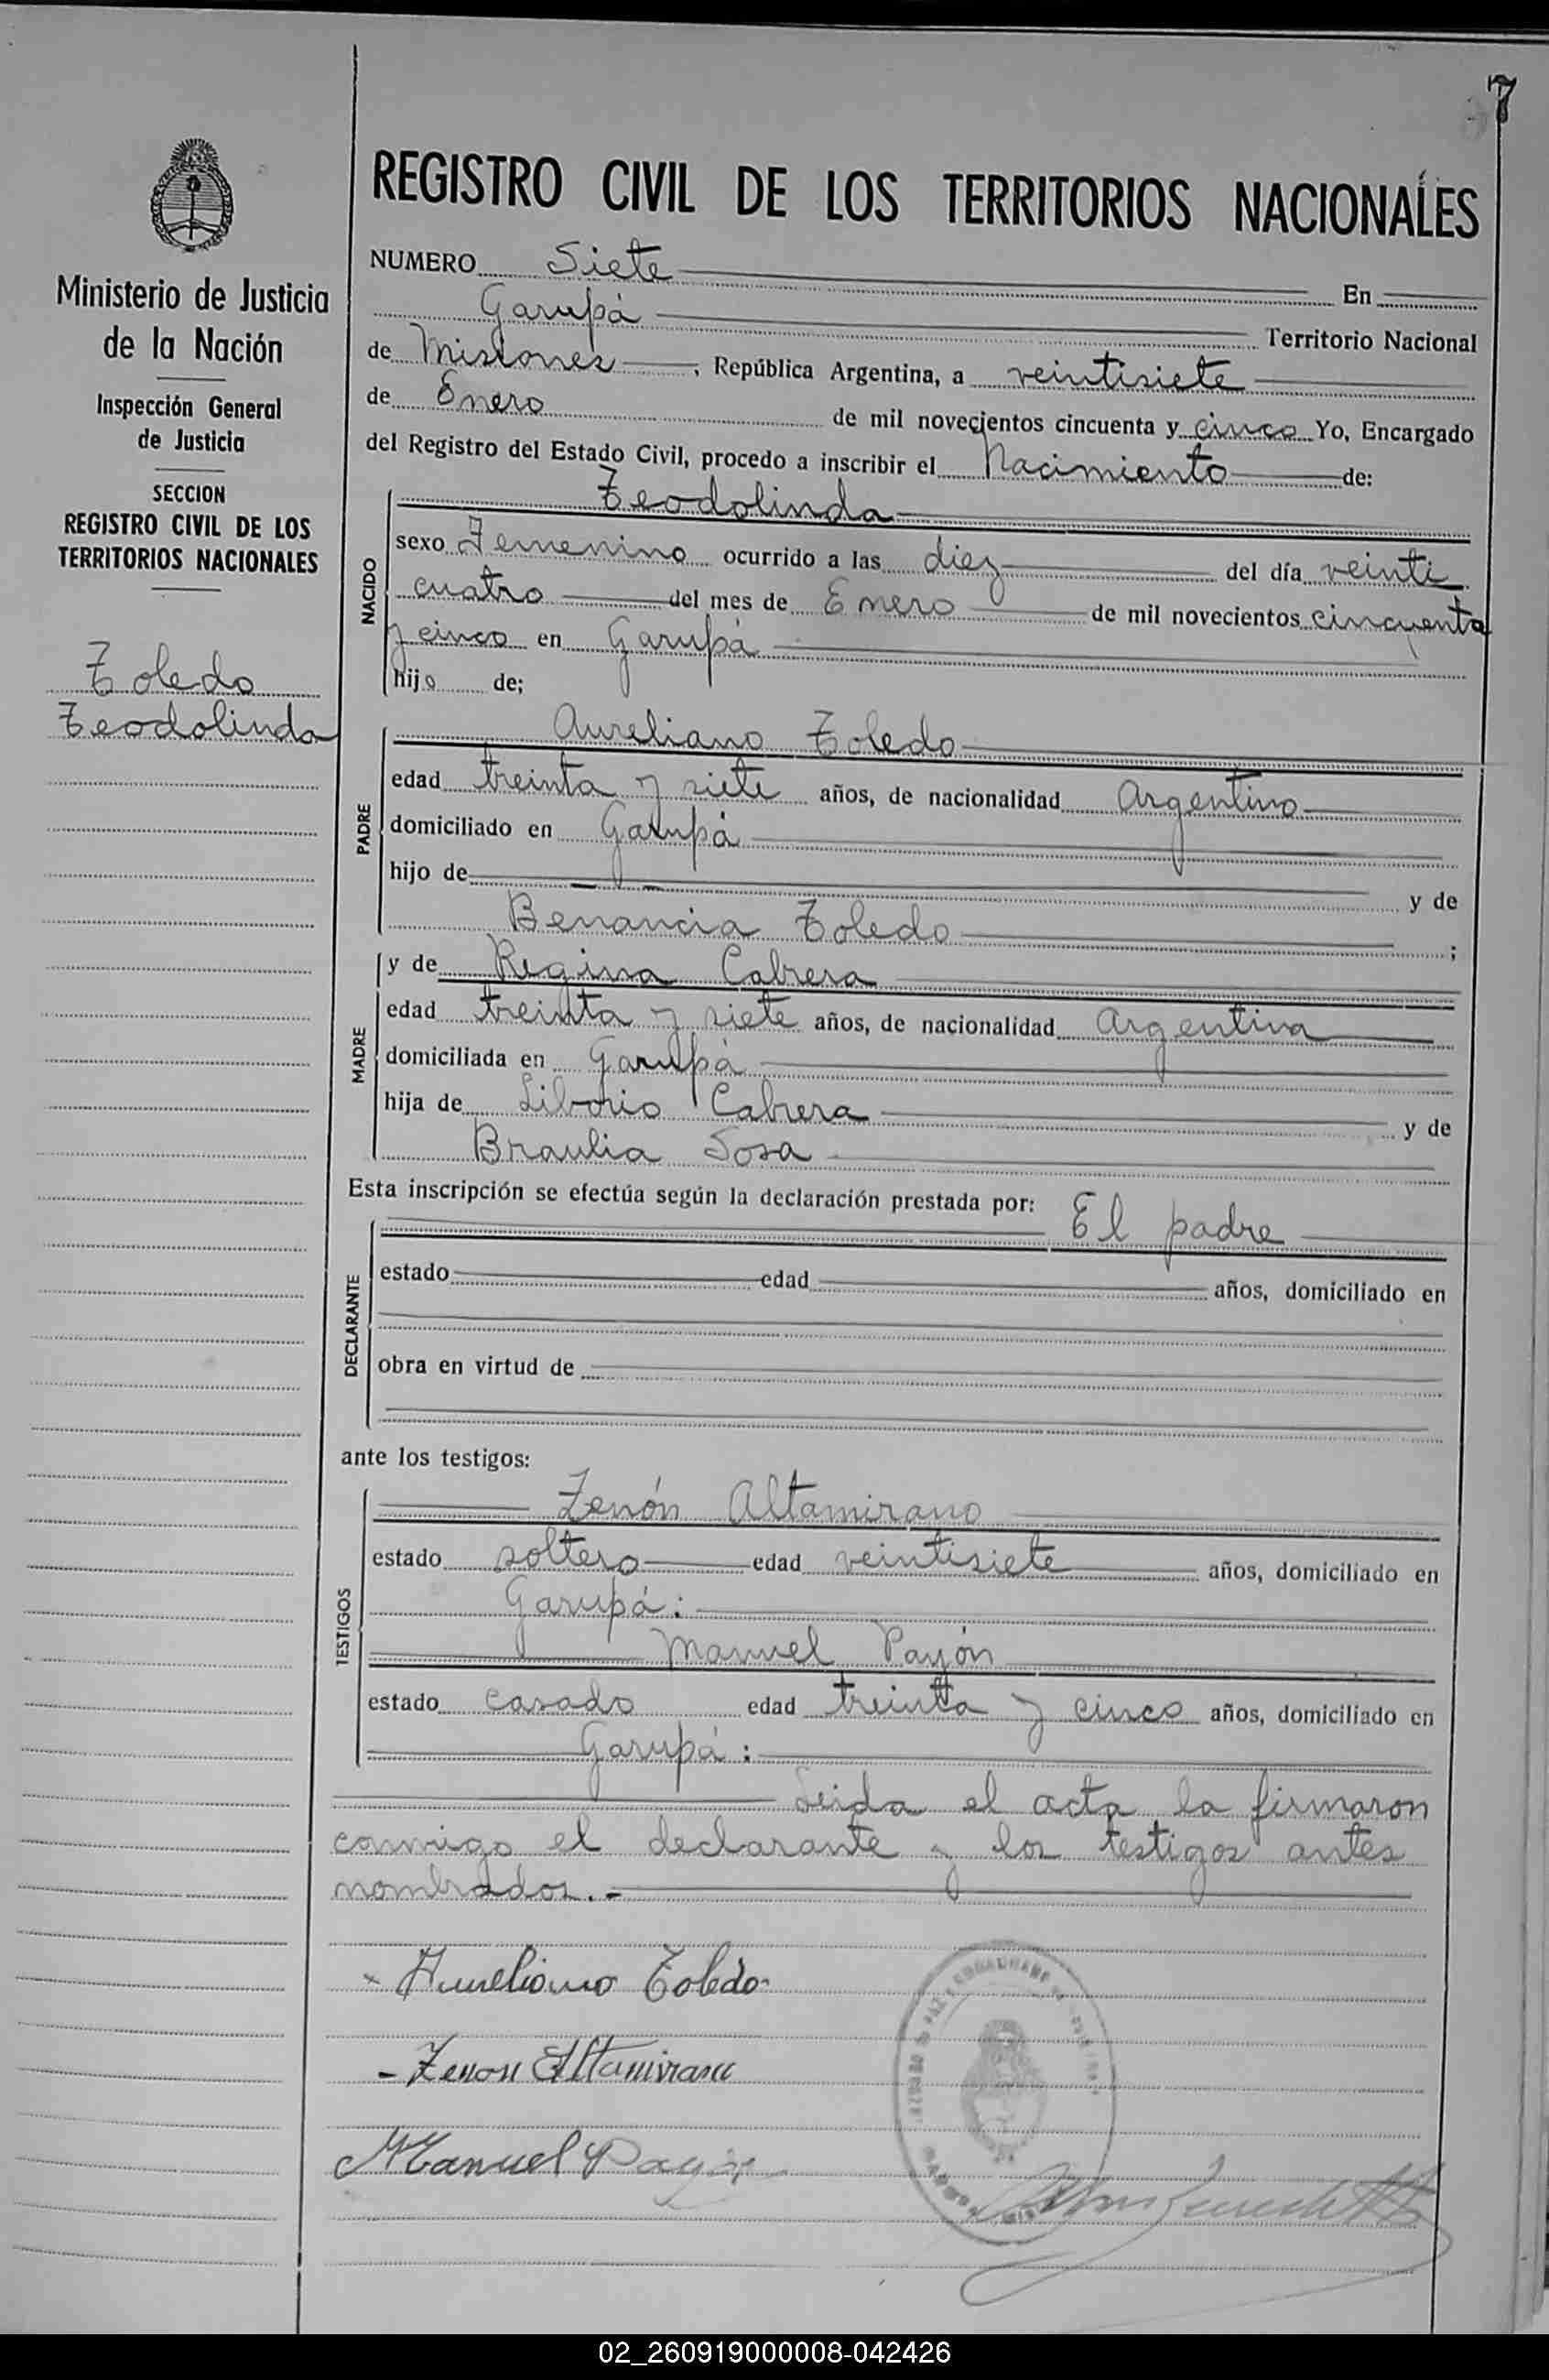 7
REGISTRO CIVIL DE LOS TERRITORIOS NACIONALES
Ministerio de Justicia
de la Nación
Inspección General
de Justicia
SECCION
REGISTRO CIVIL DE LOS
TERRITORIOS NACIONALES
Toledo
Teodolinda
NUMERO Siete En
Garupá Territorio Nacional
de Misiones, República Argentina, a veintisiete
de Enero de mil novecientos cincuenta y cinco Yo, Encargado
del Registro del Estado Civil, procedo a inscribir el Nacimiento de:
NACIDO
Teodolinda
sexo Femenino ocurrido a las diez del día veinti
cuatro del mes de Enero de mil novecientos cincuenta
y cinco en Garupá
hijo de;
PADRE
Aureliano Toledo
edad treinta y siete años, de nacionalidad Argentino
domiciliado en Garupá
hijo de y de
Benancia Toledo ;
MADRE
y de Regina Cabrera
edad treinta y siete años, de nacionalidad Argentina
domiciliada en Garupá
hija de Liborio Cabrera y de
Braulia Sosa
Esta inscripción se efectúa según la declaración prestada por: El padre
DECLARANTE
estado edad años, domiciliado en
obra en virtud de
ante los testigos:
TESTIGOS
Zenón Altamirano
estado soltero edad veintisiete años, domiciliado en
Garupá:
Manuel Payón
estado casado edad treinta y cinco años, domiciliado en
Garupá:
Leida el acta la firmaron
conmigo el declarante y los testigos antes
nombrados.-
Aureliano Toledo
- Zenon Altamirano
Manuel Payón
02_260919000008-042426